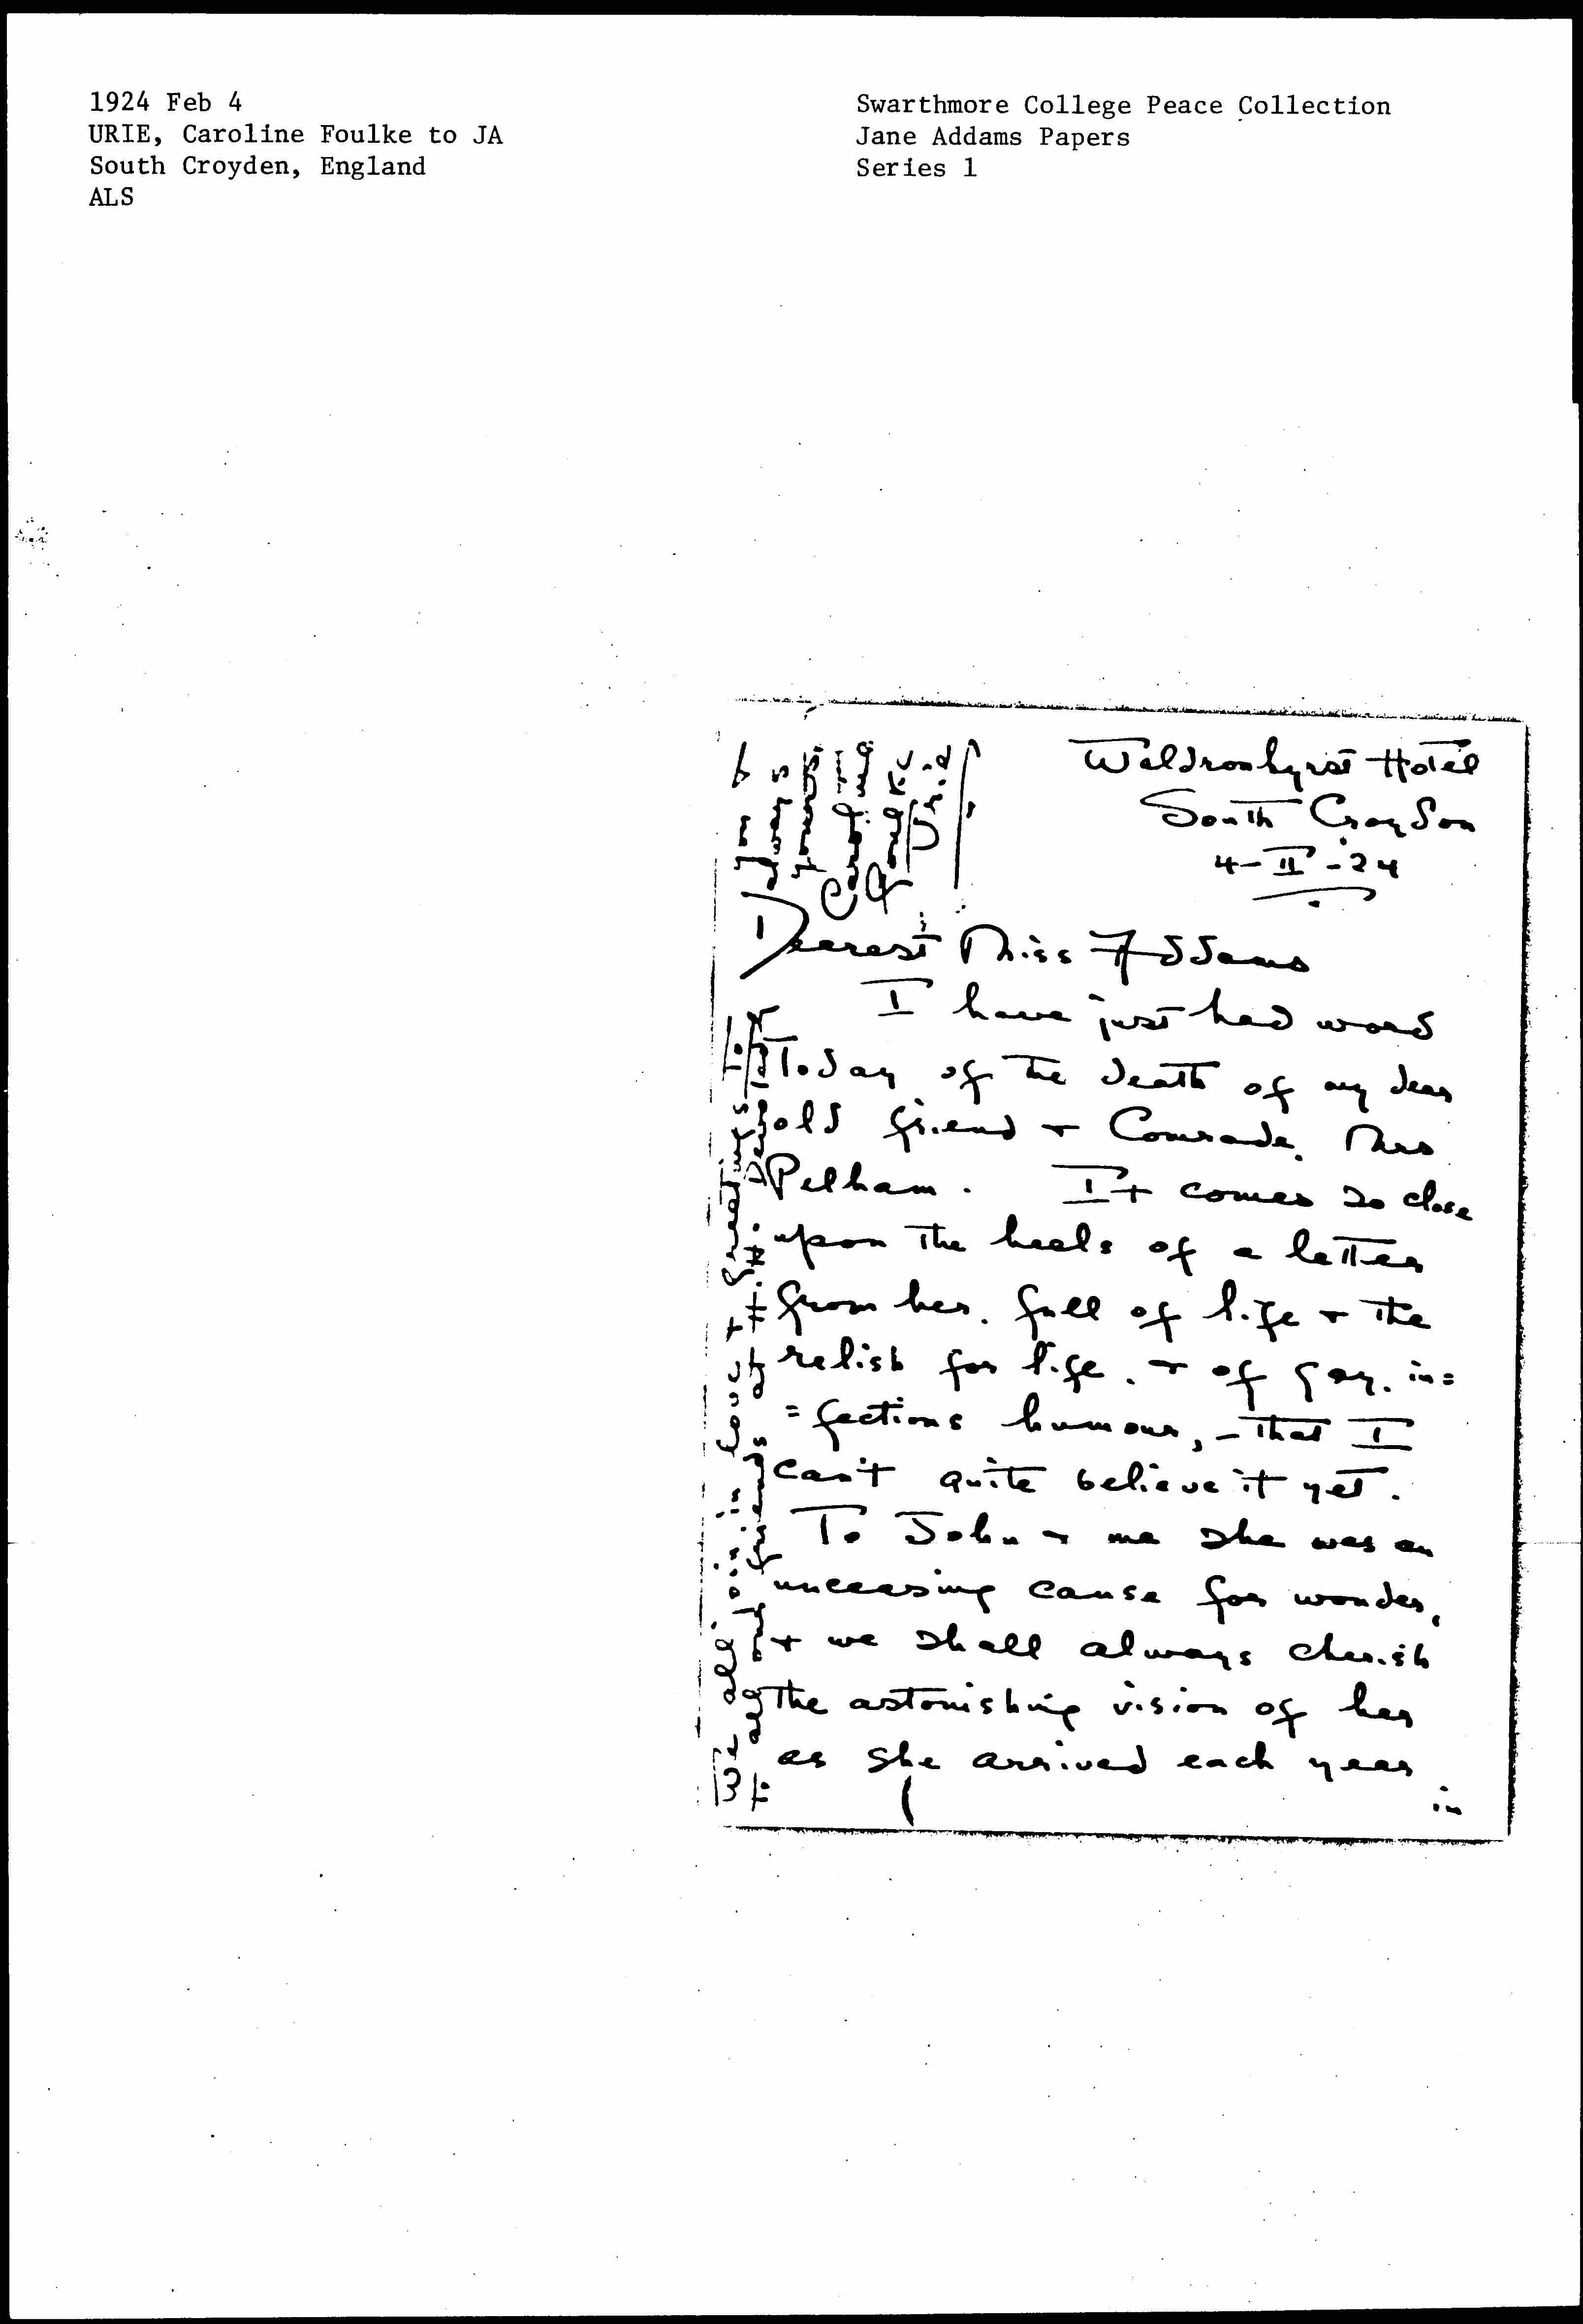 1924 Feb 4
URIE, Caroline Foulke to JA
South Croyden, England
ALS
Swarthmore College Peace Collection
Jane Addams Papers
Series 1
Waldronhyrst Hotel
South Croydon
4-II-24
Dearest Miss Addams
I have just had word
today of the death of my dear
old friend + Comrade, Mrs
Pelham. It comes so close
upon the heels of a letter
from her, full of life + the
relish for life, + of gay, in=
=fectious humour, - that I
can't quite believe it yet.
To John + me she was an
unceasing cause for wonder,
+ we shall always cherish
the astonishing vision of her
as she arrived each year
in
We all join in love + greetings to
to all our friends at H. H.
you +
always
yours.
Caroline
Foulke
Urie